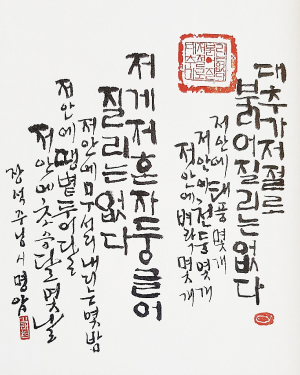 대추가 저절로
붉어질리는 없다
저안에 태풍 몇개
저안에 천둥 몇개
저안에 벼락 몇개
저게 저 혼자 둥글어
질리는 없다
저안에 무서리 내리는 몇밤
저안에 땡볕 두어달
저안에 초승달 몇날
장석주님 시